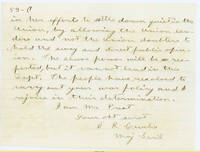 59-C
in her efforts to settle down quiet in the
Union, by allowing the Union lea-
ders and not the Union doubters to
hold the sway and direct public opin-
ion. The above power will be re-
sported, but it cannot lead in this
Dept. The people have resolved to
carry out your war policy and I
rejoice in their determination.
I am Mr Prest
Your obt servt
S. R. Curtis
Maj Genl